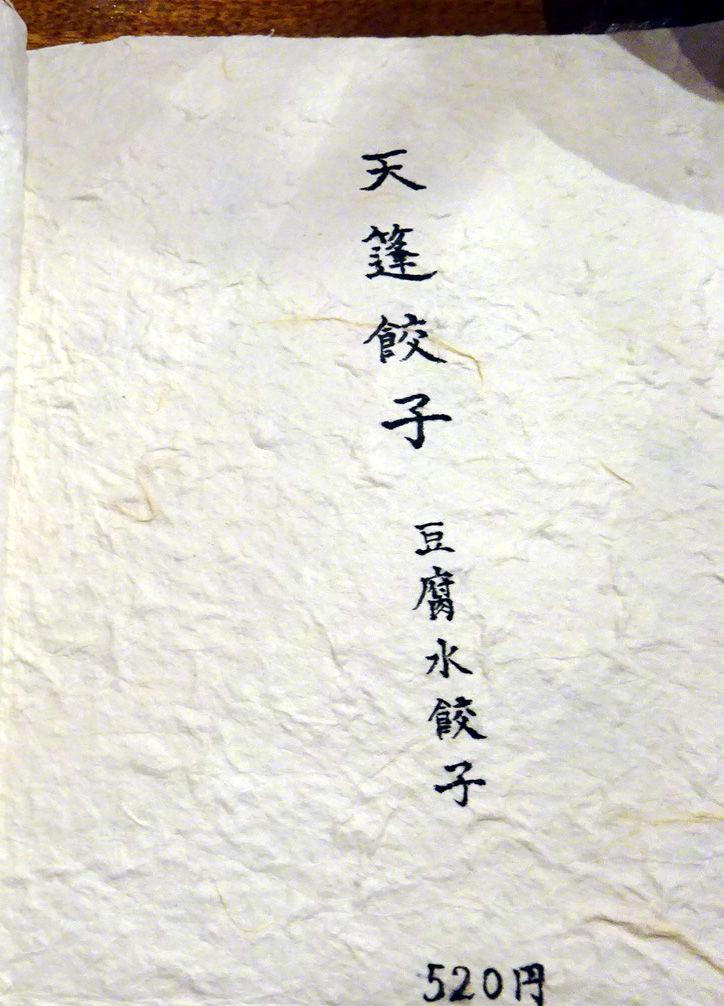 天蓬餃子
豆腐水餃子
520円